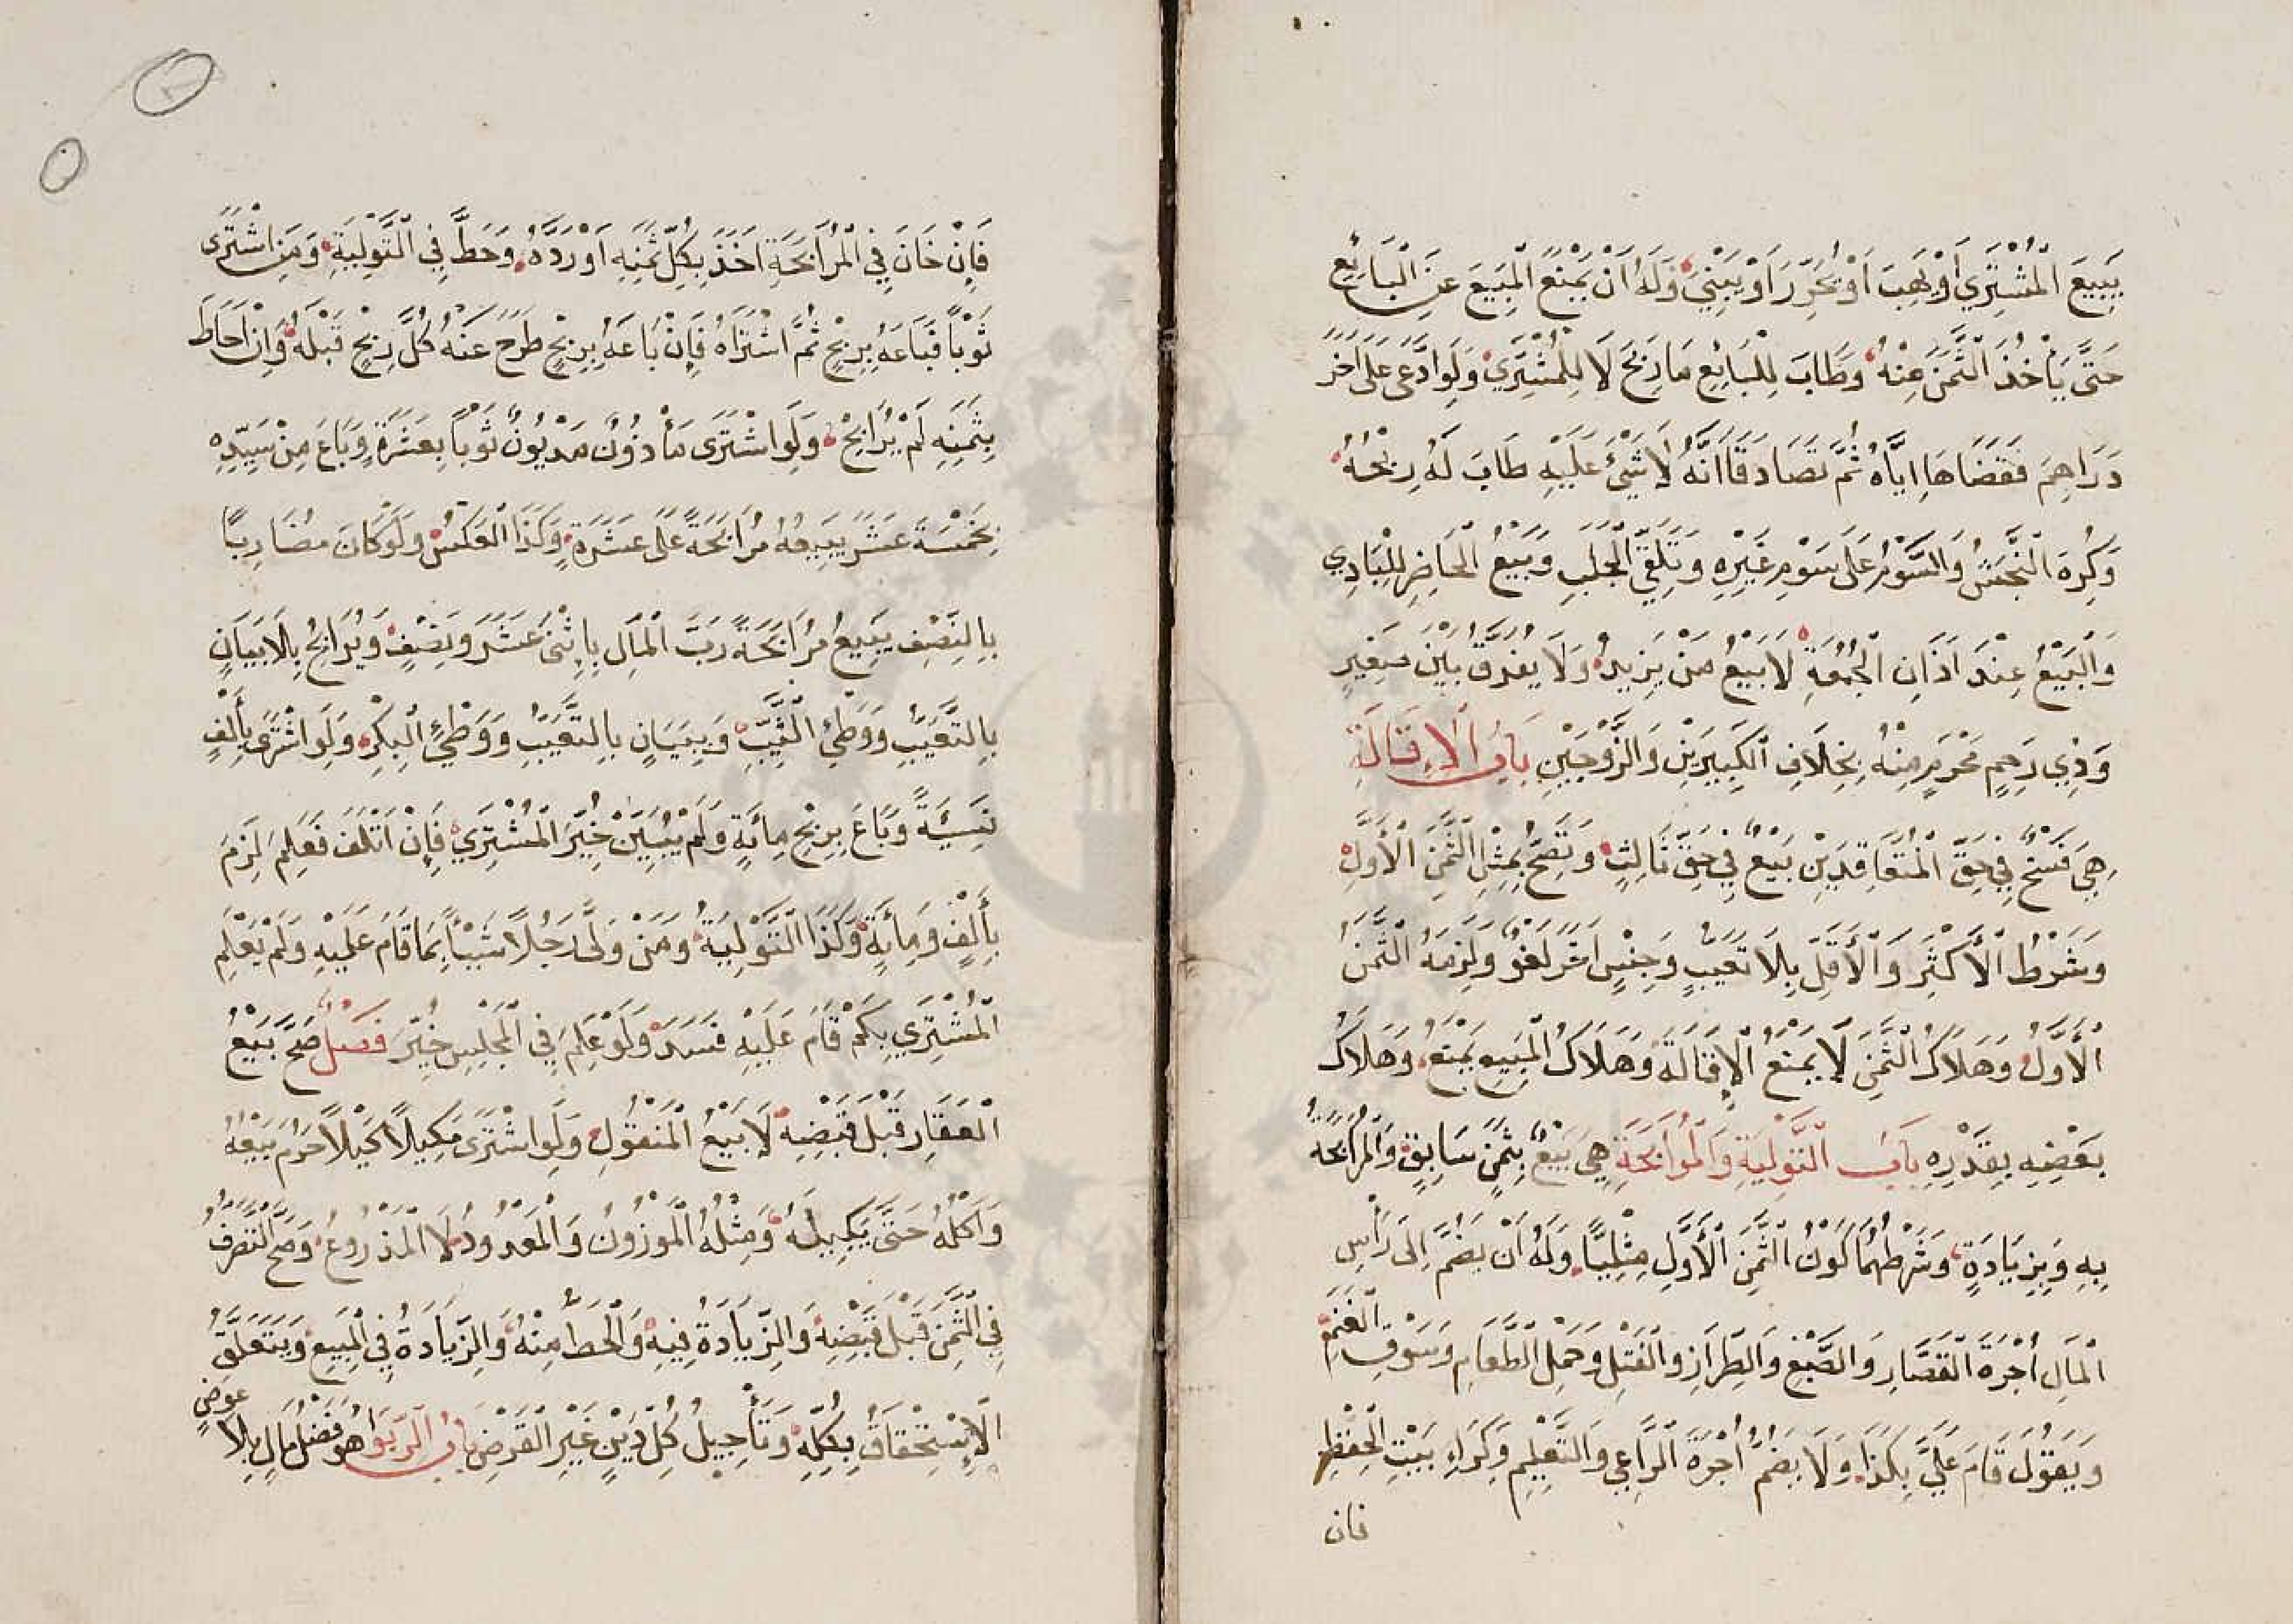 يَبِيعَ الْمُشْتَرِي أَوْ يَهَبَ أَوْ يُحَرِّرَ أَوْ يَبْنِيَ وَلَهُ أَنْ يَمْنَعَ الْمَبِيعَ عَنِ الْبَائِعِ
حَتَّى يَأْخُذَ الثَّمَنَ مِنْهُ وَطَابَ لِلْبَائِعِ مَا رَبِحَ لَا لِلْمُشْتَرِي وَلَوِ ادَّعَى عَلَى آخَرَ
دَرَاهِمَ فَقَضَاهَا إِيَّاهُ ثُمَّ تَصَادَقَا أَنَّهُ لَا شَيْئَ عَلَيْهِ طَابَ لَهُ رِبْحُهُ
وَكُرِهَ النَّجَشُ وَالسَّوْمُ عَلَى سَوْمِ غَيْرِهِ وَتَلَقِّي الْجَلَبِ وَبَيْعُ الْحَاضِرِ لِلْبَادِي
وَالْبَيْعُ عِنْدَ أَذَانِ الْجُمُعَةِ لَا بَيْعُ مَنْ يَزِيدُ وَلَا يُفَرَّقُ بَيْنَ صَغِيرٍ
وَذِي رَحِمٍ مَحْرَمٍ مِنْهُ بِخِلَافِ الْكَبِيرَيْنِ وَالزَّوْجَيْنِ بَابُ الْإِقَالَةِ
هِيَ فَسْخٌ فِي حَقِّ الْمُتَعَاقِدَيْنِ بَيْعٌ فِي حَقِّ ثَالِثٍ وَتَصِحُّ بِمِثْلِ الثَّمَنِ الْأَوَّلِ
وَشَرْطُ الْأَكْثَرِ وَالْأَقَلِّ بِلَا تَعَيُّبٍ وَجِنْسٍ آخَرَ لَغْوٌ وَلَزِمَهُ الثَّمَنُ
الْأَوَّلُ وَهَلَاكُ الثَّمَنِ لَا يَمْنَعُ الْإِقَالَةَ وَهَلَاكُ الْمَبِيعِ يَمْنَعُ وَهَلَاكُ
بَعْضِهِ بِقَدْرِهِ بَابُ التَّوْلِيَةِ وَالْمُرَابَحَةِ هِيَ بَيْعٌ بِثَمَنٍ سَابِقٍ وَالْمُرَابَحَةُ
بِهِ وَبِزِيَادَةٍ وَشَرْطُهُمَا كَوْنُ الثَّمَنِ الْأَوَّلِ مِثْلِيًّا وَلَهُ أَنْ يَضُمَّ إِلَى رَأْسِ
الْمَالِ أُجْرَةَ الْقَصَّارِ وَالصَّبْغِ وَالطِّرَازِ وَالْفَتْلِ وَحَمْلِ الطَّعَامِ وَسَوْقِ الْغَنَمِ
وَيَقُولُ قَامَ عَلَيَّ بِكَذَا وَلَا يَضُمُّ أُجْرَةَ الرَّاعِي وَالتَّعْلِيمِ وَكِرَاءِ بَيْتِ الْحِفْظِ
فان
فَإِنْ خَانَ فِي الْمُرَابَحَةِ أَخَذَ بِكُلِّ ثَمَنِهِ أَوْ رَدَّهُ وَحَطَّ فِي التَّوْلِيَةِ وَمَنِ اشْتَرَى
ثَوْبًا فَبَاعَهُ بِرِبْحٍ ثُمَّ اشْتَرَاهُ فَإِنْ بَاعَهُ بِرِبْحٍ طَرَحَ عَنْهُ كُلَّ رِبْحٍ قَبْلَهُ وَإِنْ أَحَاطَ
بِثَمَنِهِ لَمْ يُرَابِحْ وَلَوِ اشْتَرَى مَأْذُونٌ مَدْيُونٌ ثَوْبًا بِعَشَرَةٍ وَبَاعَ مِنْ سَيِّدِهِ
بِخَمْسَةَ عَشَرَ يَبِيعُهُ مُرَابَحَةً عَلَى عَشَرَةٍ وَكَذَا الْعَكْسُ وَلَوْ كَانَ مُضَارِبًا
بِالنِّصْفِ يَبِيعُ مُرَابَحَةً رَبُّ الْمَالِ بِاثْنَيْ عَشَرَ وَنِصْفٍ وَيُرَابِحُ بِلَا بَيَانٍ
بِالتَّعَيُّبِ وَوَطْئِ الثَّيِّبِ وَبِبَيَانٍ بِالتَّعْيِيبِ وَوَطْئِ الْبِكْرِ وَلَوِ اشْتَرَى بِأَلْفٍ
نَسِيئَةً وَبَاعَ بِرِبْحِ مِائَةٍ وَلَمْ يُبَيِّنْ خُيِّرَ الْمُشْتَرِي فَإِنْ أَتْلَفَ فَعَلِمَ لَزِمَ
بِأَلْفٍ وَمِائَةٍ وَكَذَا التَّوْلِيَةُ وَمَنْ وَلَّى رَجُلًا شَيْئًا بِمَا قَامَ عَلَيْهِ وَلَمْ يَعْلَمِ
الْمُشْتَرِي بِكَمْ قَامَ عَلَيْهِ فَسَدَ وَلَوْ عَلِمَ فِي الْمَجْلِسِ خُيِّرَ فَصْلٌ صَحَّ بَيْعُ
الْعَقَارِ قَبْلَ قَبْضِهِ لَا بَيْعُ الْمَنْقُولِ وَلَوِ اشْتَرَى مَكِيلًا كَيْلًا حَرُمَ بَيْعُهُ
وَأَكْلُهُ حَتَّى يَكِيلَهُ وَمِثْلُهُ الْمَوْزُونُ وَالْمَعْدُودُ لَا الْمَذْرُوعُ وَصَحَّ التَّصَرُّفُ
فِي الثَّمَنِ قَبْلَ قَبْضِهِ وَالزِّيَادَةُ فِيهِ وَالْحَطُّ مِنْهُ وَالزِّيَادَةُ فِي الْمَبِيعِ وَيَتَعَلَّقُ
الْإِسْتِحْقَاقُ بِكُلِّهِ وَتَأْجِيلُ كُلِّ دَيْنٍ غَيْرِ الْقَرْضِ بَابُ الرِّبَوا هُوَ فَضْلُ مَالٍ بِلَا عِوَضٍ